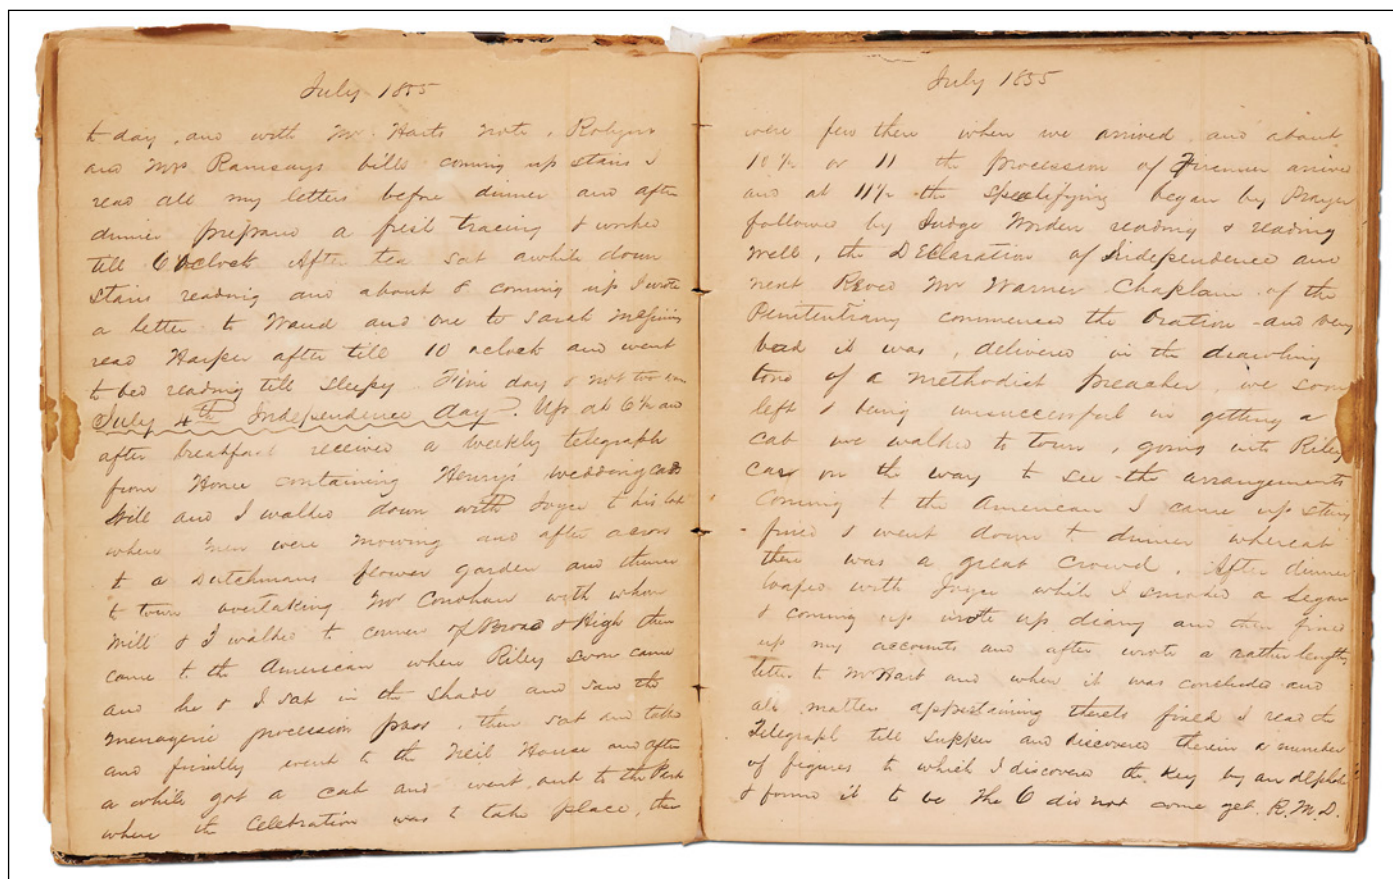 July 1855
to day, and with Mr. Harts note,
and Mrs Ramsays bills coming up stairs I
read all my letters before dinner and after
dinner prepared a fresh tracing & worked
till 6 oclock After tea sat awhile down
stairs reading and about 8 coming up I wrote
a letter to and one to Sarah
read Harper after till 10 oclock and went
to bed reading till sleepy. Fine day & not too
July 4th Independence day. Up at 6½ and
after breakfast received a weekly telegraph
from Home containing Henry's wedding cards
Will and I walked down with Joyce to his
where men were mowing and after across
to a Dutchmans flower garden and thence
to town overtaking Mr Conohan with whom
Will & I walked to corner of Broad & High then
came to the American where Riley soon came
and he & I sat in the shade and saw the
menagerie procession pass, then sat and talked
and finally went to the Neil House and after
a while got a cab and went out to the Park
where the Celebration was to take place, there
July 1855
were few there when we arrived and about
10½ or 11 the procession of Firemen arrived
and at 11½ the speechifying began by Prayer
followed by Judge Worden reading & reading
well, the DEclaration of Independence and
next Revd Mr Warner Chaplain of the
Penitentiary commenced the Oration - and very
bad it was, delivered in the drawling
tone of a methodist preacher we soon
left & being unsuccessful in getting a
cab we walked to town, going into Riley
on the way to see the arrangements
Coming to the American I came up stairs
fixed & went down to dinner whereat
there was a great crowd. After dinner
loafed with Joyce while I smoked a Segar
& coming up wrote up diary and then fixed
up my accounts and after wrote a rather lengthy
letter to Mr Hart and when it was concluded and
all matter appertaining thereto fixed I read the
Telegraph till supper and discovered therein a number
of figures to which I discovered the Key by an alphabet
& found it to be The 6 did not come yet. R.M.D.